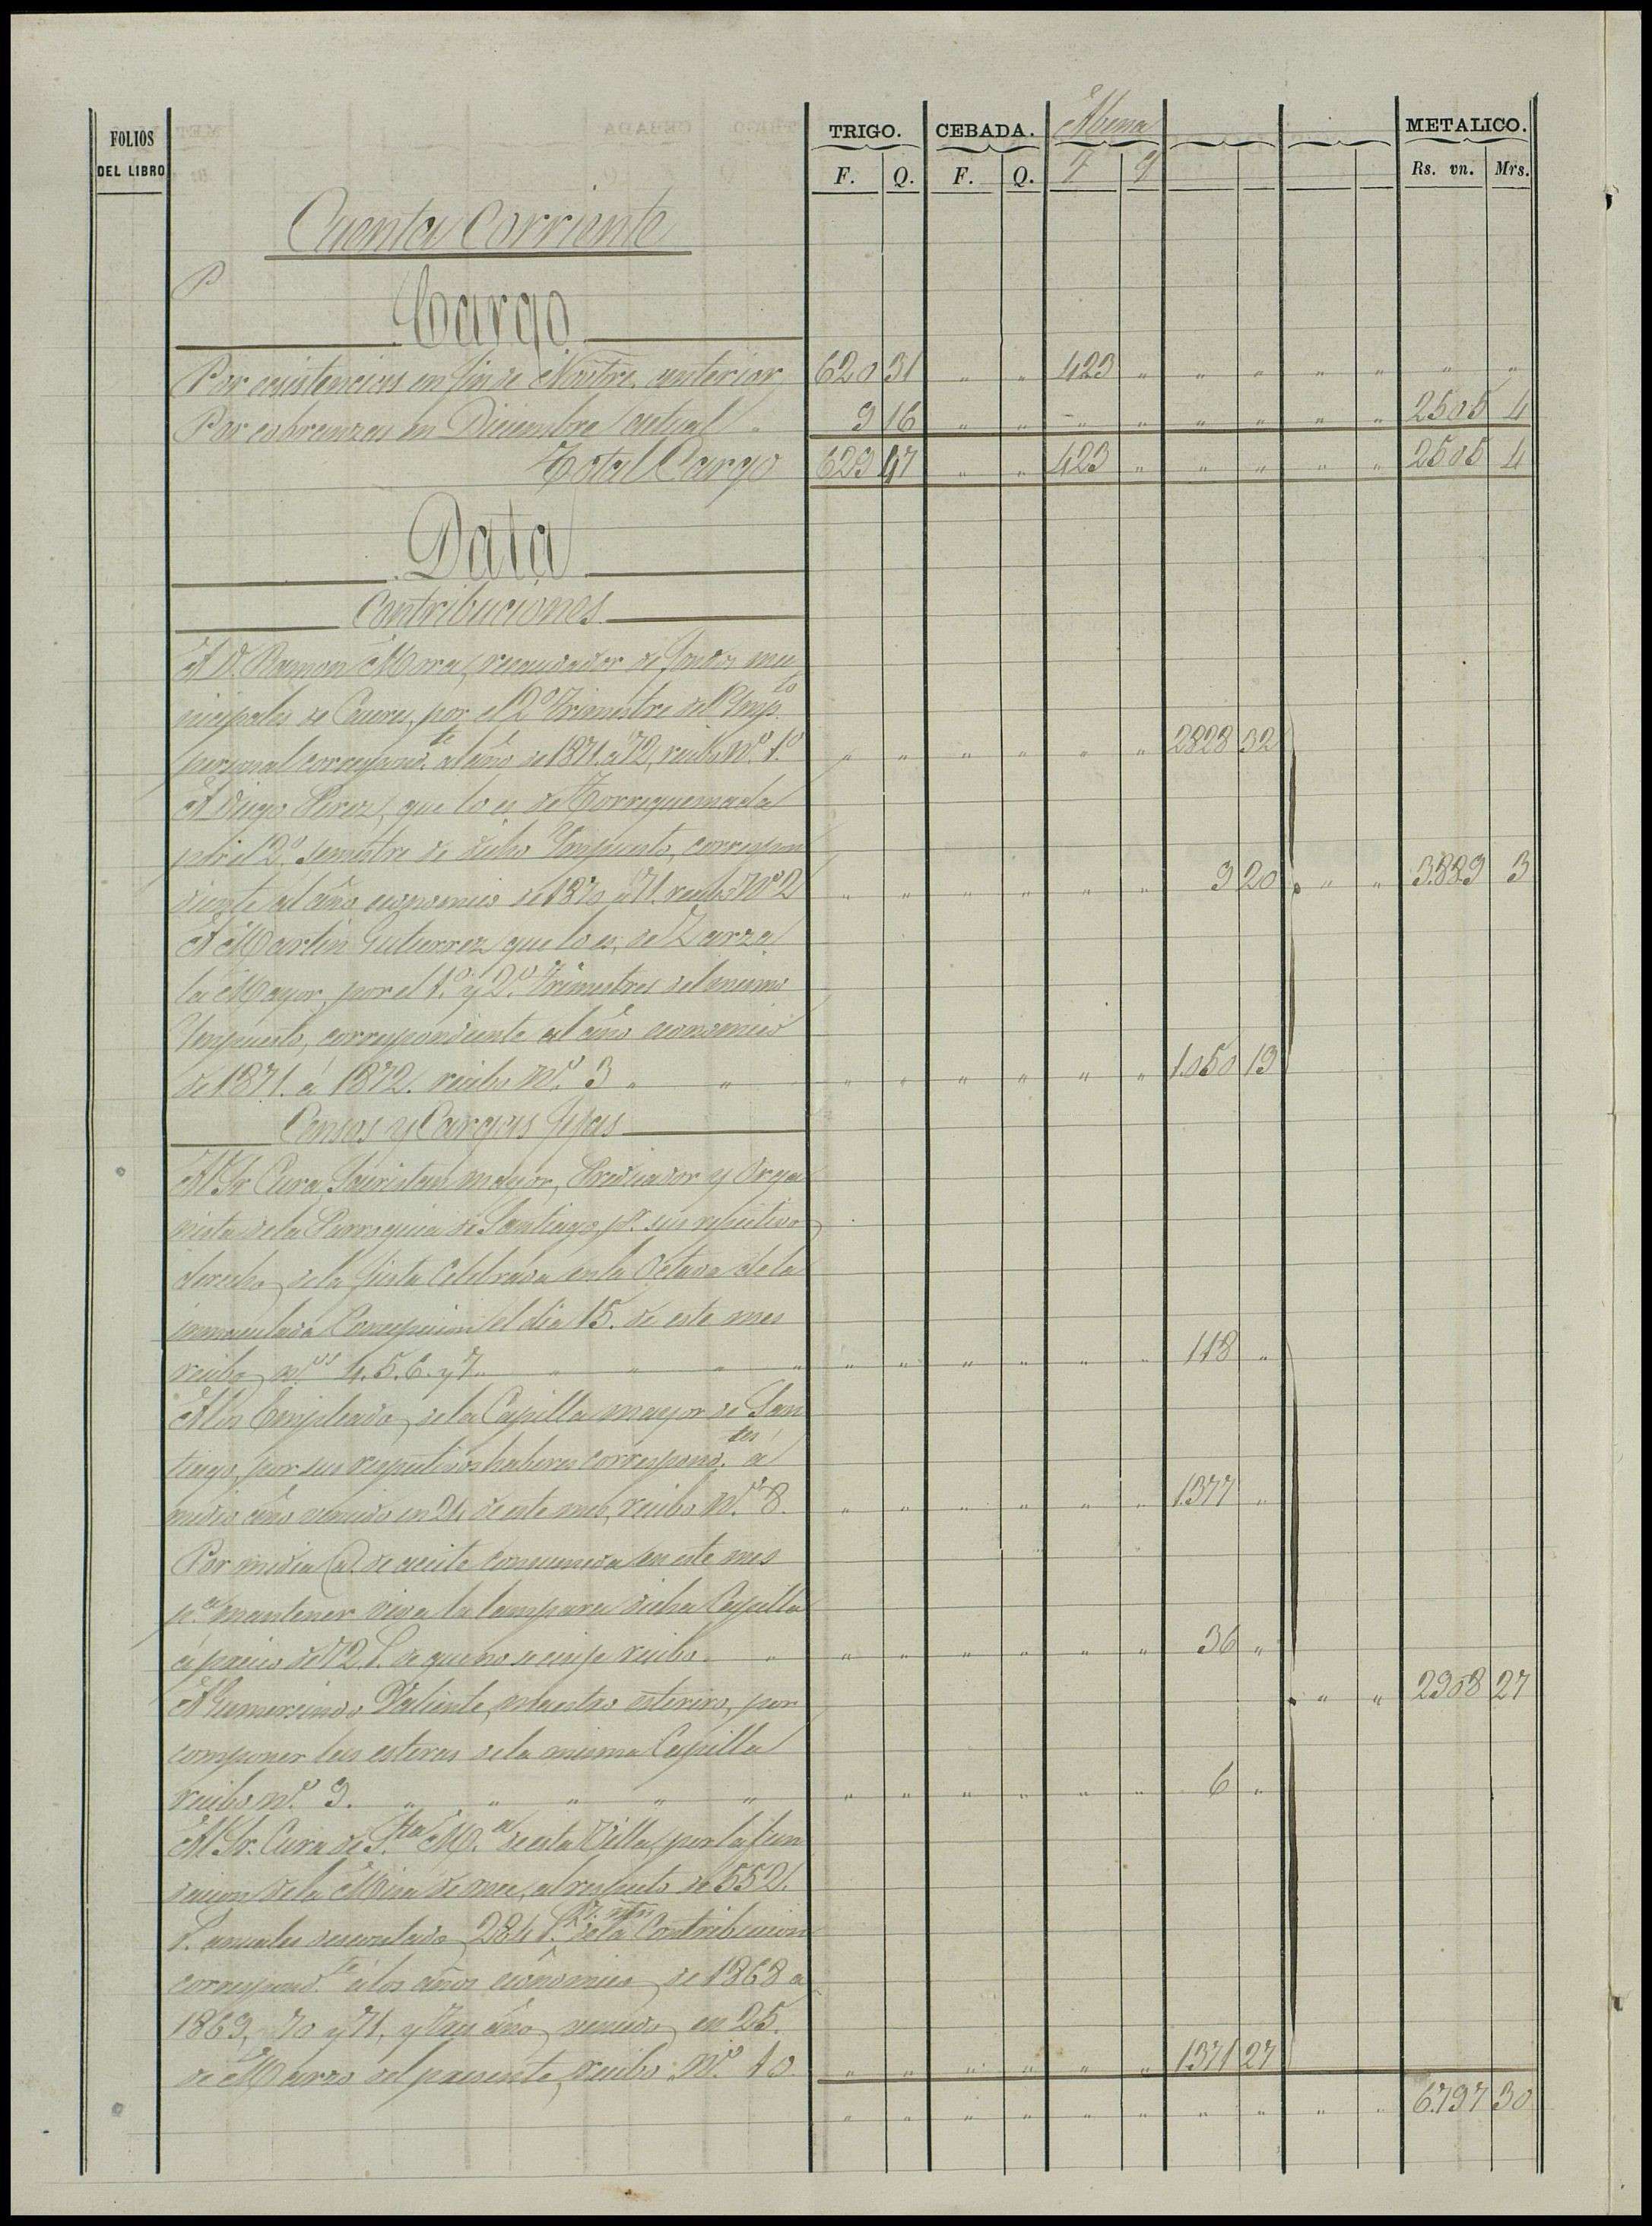 FOLIOS DEL LIBRO
TRIGO. CEBADA. Abena METALICO.
F. Q. F. Q. F Q Rs. vn. Mrs.
Cuenta Corriente
P
Cargo
Por existencias en fin de Nobre. anterior 620 31 " " 423 " " " " " " "
Por cobranzas en Diciembre actual " 9 16 " " " " " " " " 2505 4
Total Cargo 629 47 " " 423 " " " " " 2505 4
Data
Contribuciones
A D. Ramon Mora, recaudador de fondos mu
nicipales de Caceres, por el 2º Trimestre del Imp.to
personal correspond.te al año de 1871 a 72, recibo Nº 1º " " " " " " 2828 32
A Diego Perez, que lo es de Torrequemada
por el 2º semestre de dicho Impuesto, correspon
diente al año economico de 1870 a 71. recibo Nº 2 " " " " " " 9 20 " " 3.889 3
A Martin Gutierrez que lo es, de Zarza
la Mayor, por el 1º y 2º Trimestres del mismo
Impuesto, correspondiente al año economico
de 1871. á 1872. recibo Nº 3 " " " " " " " " 1.050 19
Censos y Cargas fijas
Al Sr Cura, Sacristan mayor, Predicador y Orga
nista de la Parroquia de Santiago, pr. sus respectivos
derechos de la fiesta celebrada en la Octava de la
inmaculada Concepcion el dia 15. de este mes
recibos nos 4. 5. 6. y 7 " " " " " " " " " " 118 "
A los Empleados de la Capilla mayor de San
tiago, por sus respectivos haberes correspond.tes a
medio año vencido en 24 de este mes, recibo Nº 8. " " " " " " 1.377 "
Por media @ de aceite consumida en este mes
p.a mantener viva la lampara dicha Capilla
á precio de 72. r. de que no se exije recibo " " " " " " " " 36 "
A Gumersindo Valiente, maestro esterero, por " " 2908 27
componer las esteras de la misma Capilla
recibo nº 9. " " " " " " " " " " " 6 "
Al Sr. Cura de S.ta M.a de esta Villa, por la fun
dacion de la Misa de once, al respecto de 552.
r. anuales descontados 284 r. 7. mrs de la Contribucion
correspond.te á los años económicos de 1868 a
1869, 70 y 71, y tres años vencidos en 25.
de Marzo del presente, recibo Nº 10. " " " " " " 1.371 27
" " " " " " " " " " 6.797 30